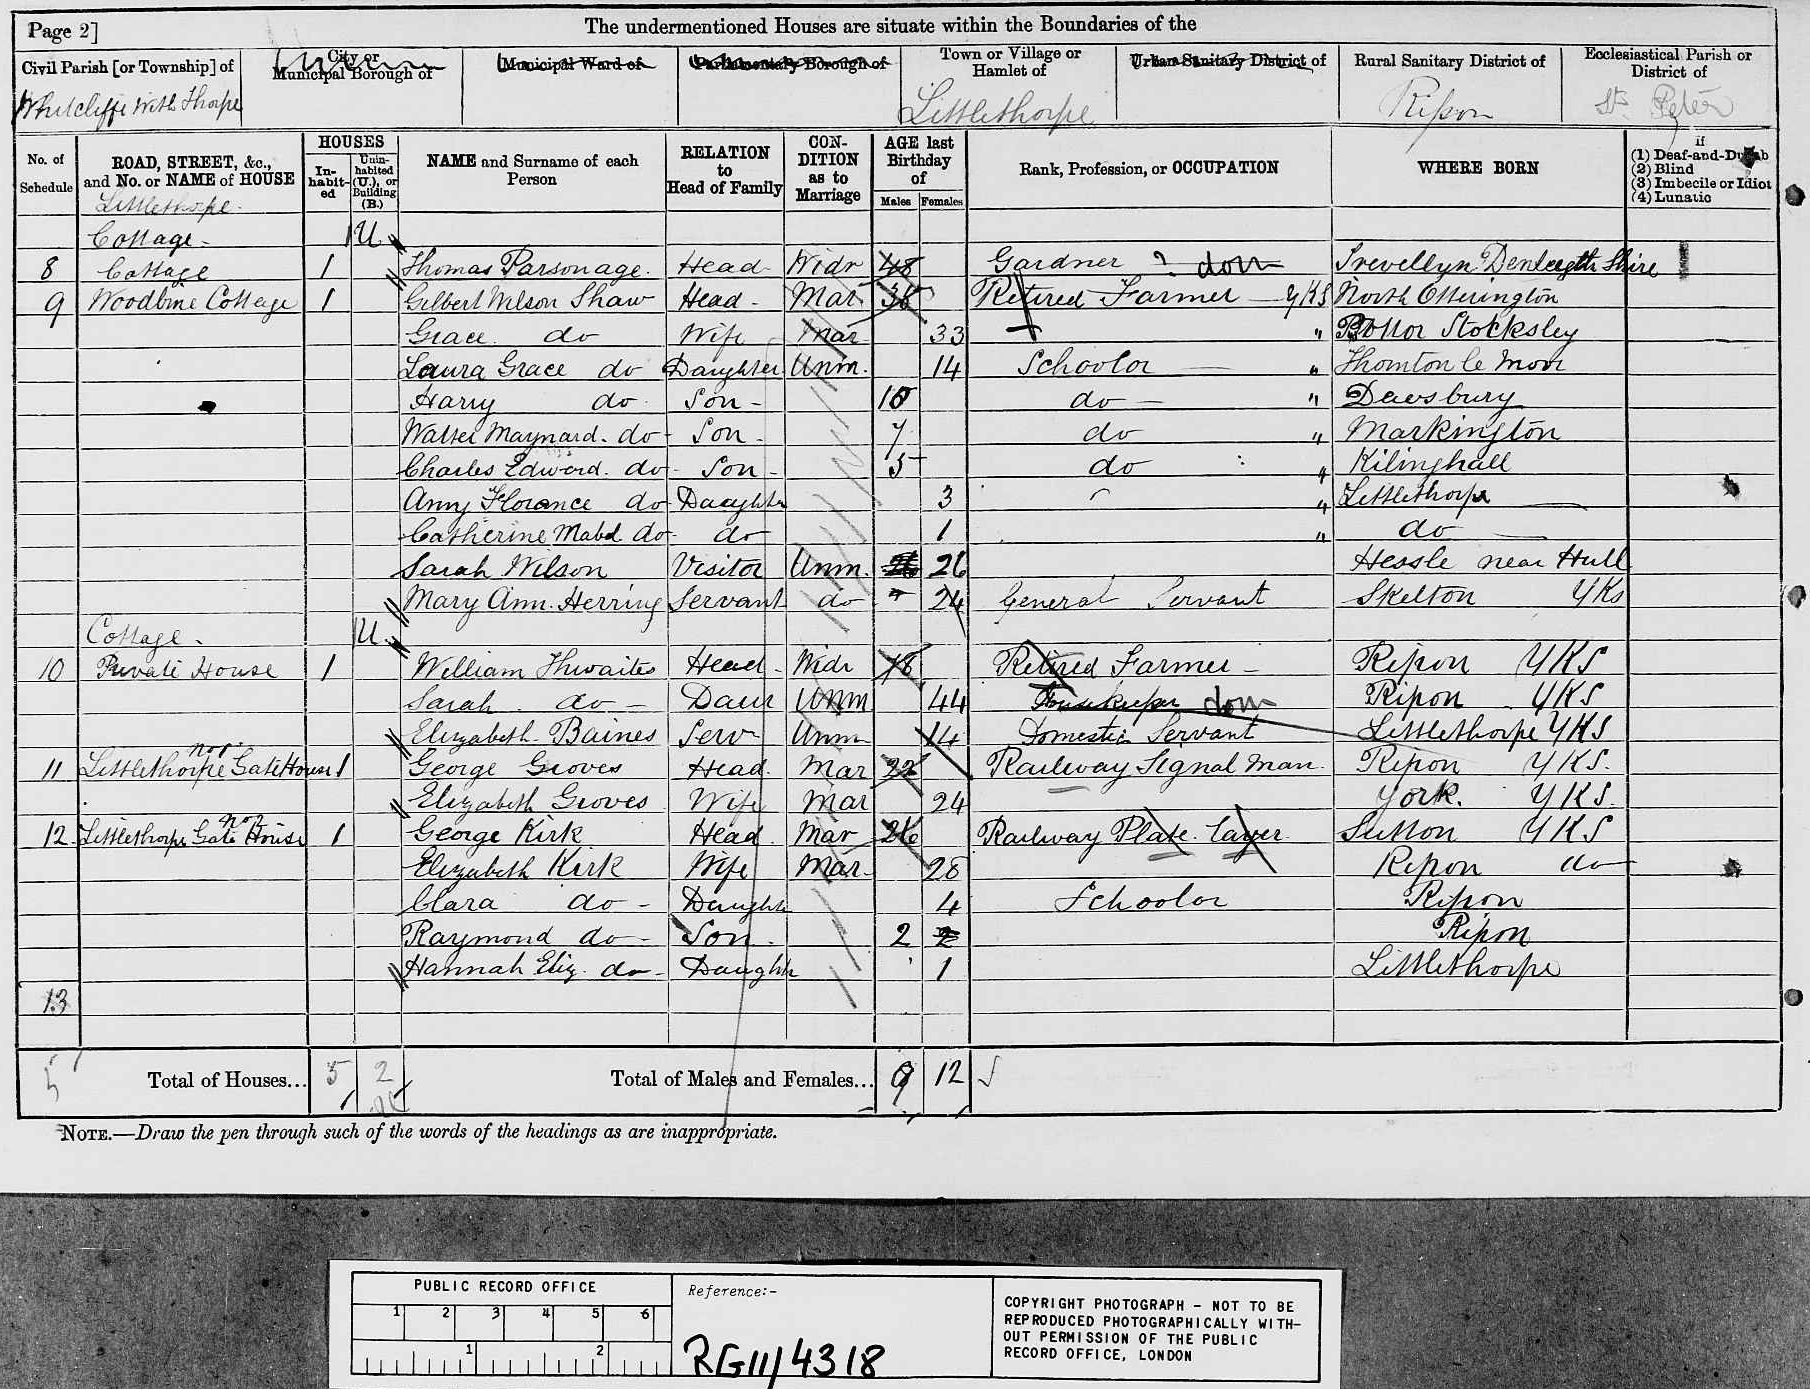 Page 2]
The undermentioned Houses are situate within the Boundaries of the
Civil Parish [or Township] of
Whitcliffe with Thorpe
City or
Municipal Borough of
Municipal Ward of
Parliamentary Borough of
Town or Village or
Hamlet of
Littlethorpe
Urban Sanitary District of
Rural Sanitary District of
Ripon
Ecclesiastical Parish or
District of
St. Peter
No. of
Schedule
ROAD, STREET, &c.,
and No. or NAME of HOUSE
HOUSES
In-
habit-
ed
Unin-
habited
(U.), or
Building
(B.)
NAME and Surname of each
Person
RELATION
to
Head of Family
CON-
DITION
as to
Marriage
AGE last
Birthday
of
Males
Females
Rank, Profession, or OCCUPATION
WHERE BORN
if
(1) Deaf-and-Dumb
(2) Blind
(3) Imbecile or Idiot
(4) Lunatic
Littlethorpe
Cottage 1U
8 Cottage 1 Thomas Parsonage Head Widr 48 Gardner ? dom Trevellyn
9 Woodbine Cottage 1 Gilbert Wilson Shaw Head Mar Retired Farmer YKS North Otterington
Grace do Wife Mar 33 " Stocksley
Laura Grace do Daughter Unm. 14 Schoolor " Thornton le Moor
Harry do Son 10 do " Dewsbury
Walter Maynard do Son 7 do " Markington
Charles Edward do Son 5 do " Kilinghall
Amy Florance do Daughter 3 " Littlethorpe
Catherine Mabel do do 1 " do
Sarah Wilson Visitor Unm. 26 26 Hessle near Hull
Mary Ann Herring Servant do " 24 General Servant Skelton YKs
Cottage 1U
10 Private House 1 William Thwaites Head Widr Retired Farmer Ripon YKS
Sarah do Daur Unm 44 Housekeeper dom Ripon YKS
Elizabeth Baines Serv Unm 14 Domestic Servant Littlethorpe YKS
11 Littlethorpe Gate House 1 George Groves Head Mar 22 Railway Signal Man Ripon YKS
Elizabeth Groves Wife Mar 24 York. YKS
12 Littlethorpe Gate House 1 George Kirk Head Mar 26 Railway Plate Layer Sutton YKS
Elizabeth Kirk Wife Mar 28 Ripon do
Clara do Daughter 4 Schoolor Ripon
Raymond do Son 2 2 Ripon
Hannah Eliz. do Daughter 1 Littlethorpe
13
5 Total of Houses... 5 2 Total of Males and Females... 9 12
NOTE.—Draw the pen through such of the words of the headings as are inappropriate.
PUBLIC RECORD OFFICE
1 2 3 4 5 6
1 2
Reference:-
RG11/4318
COPYRIGHT PHOTOGRAPH - NOT TO BE
REPRODUCED PHOTOGRAPHICALLY WITH-
OUT PERMISSION OF THE PUBLIC
RECORD OFFICE, LONDON